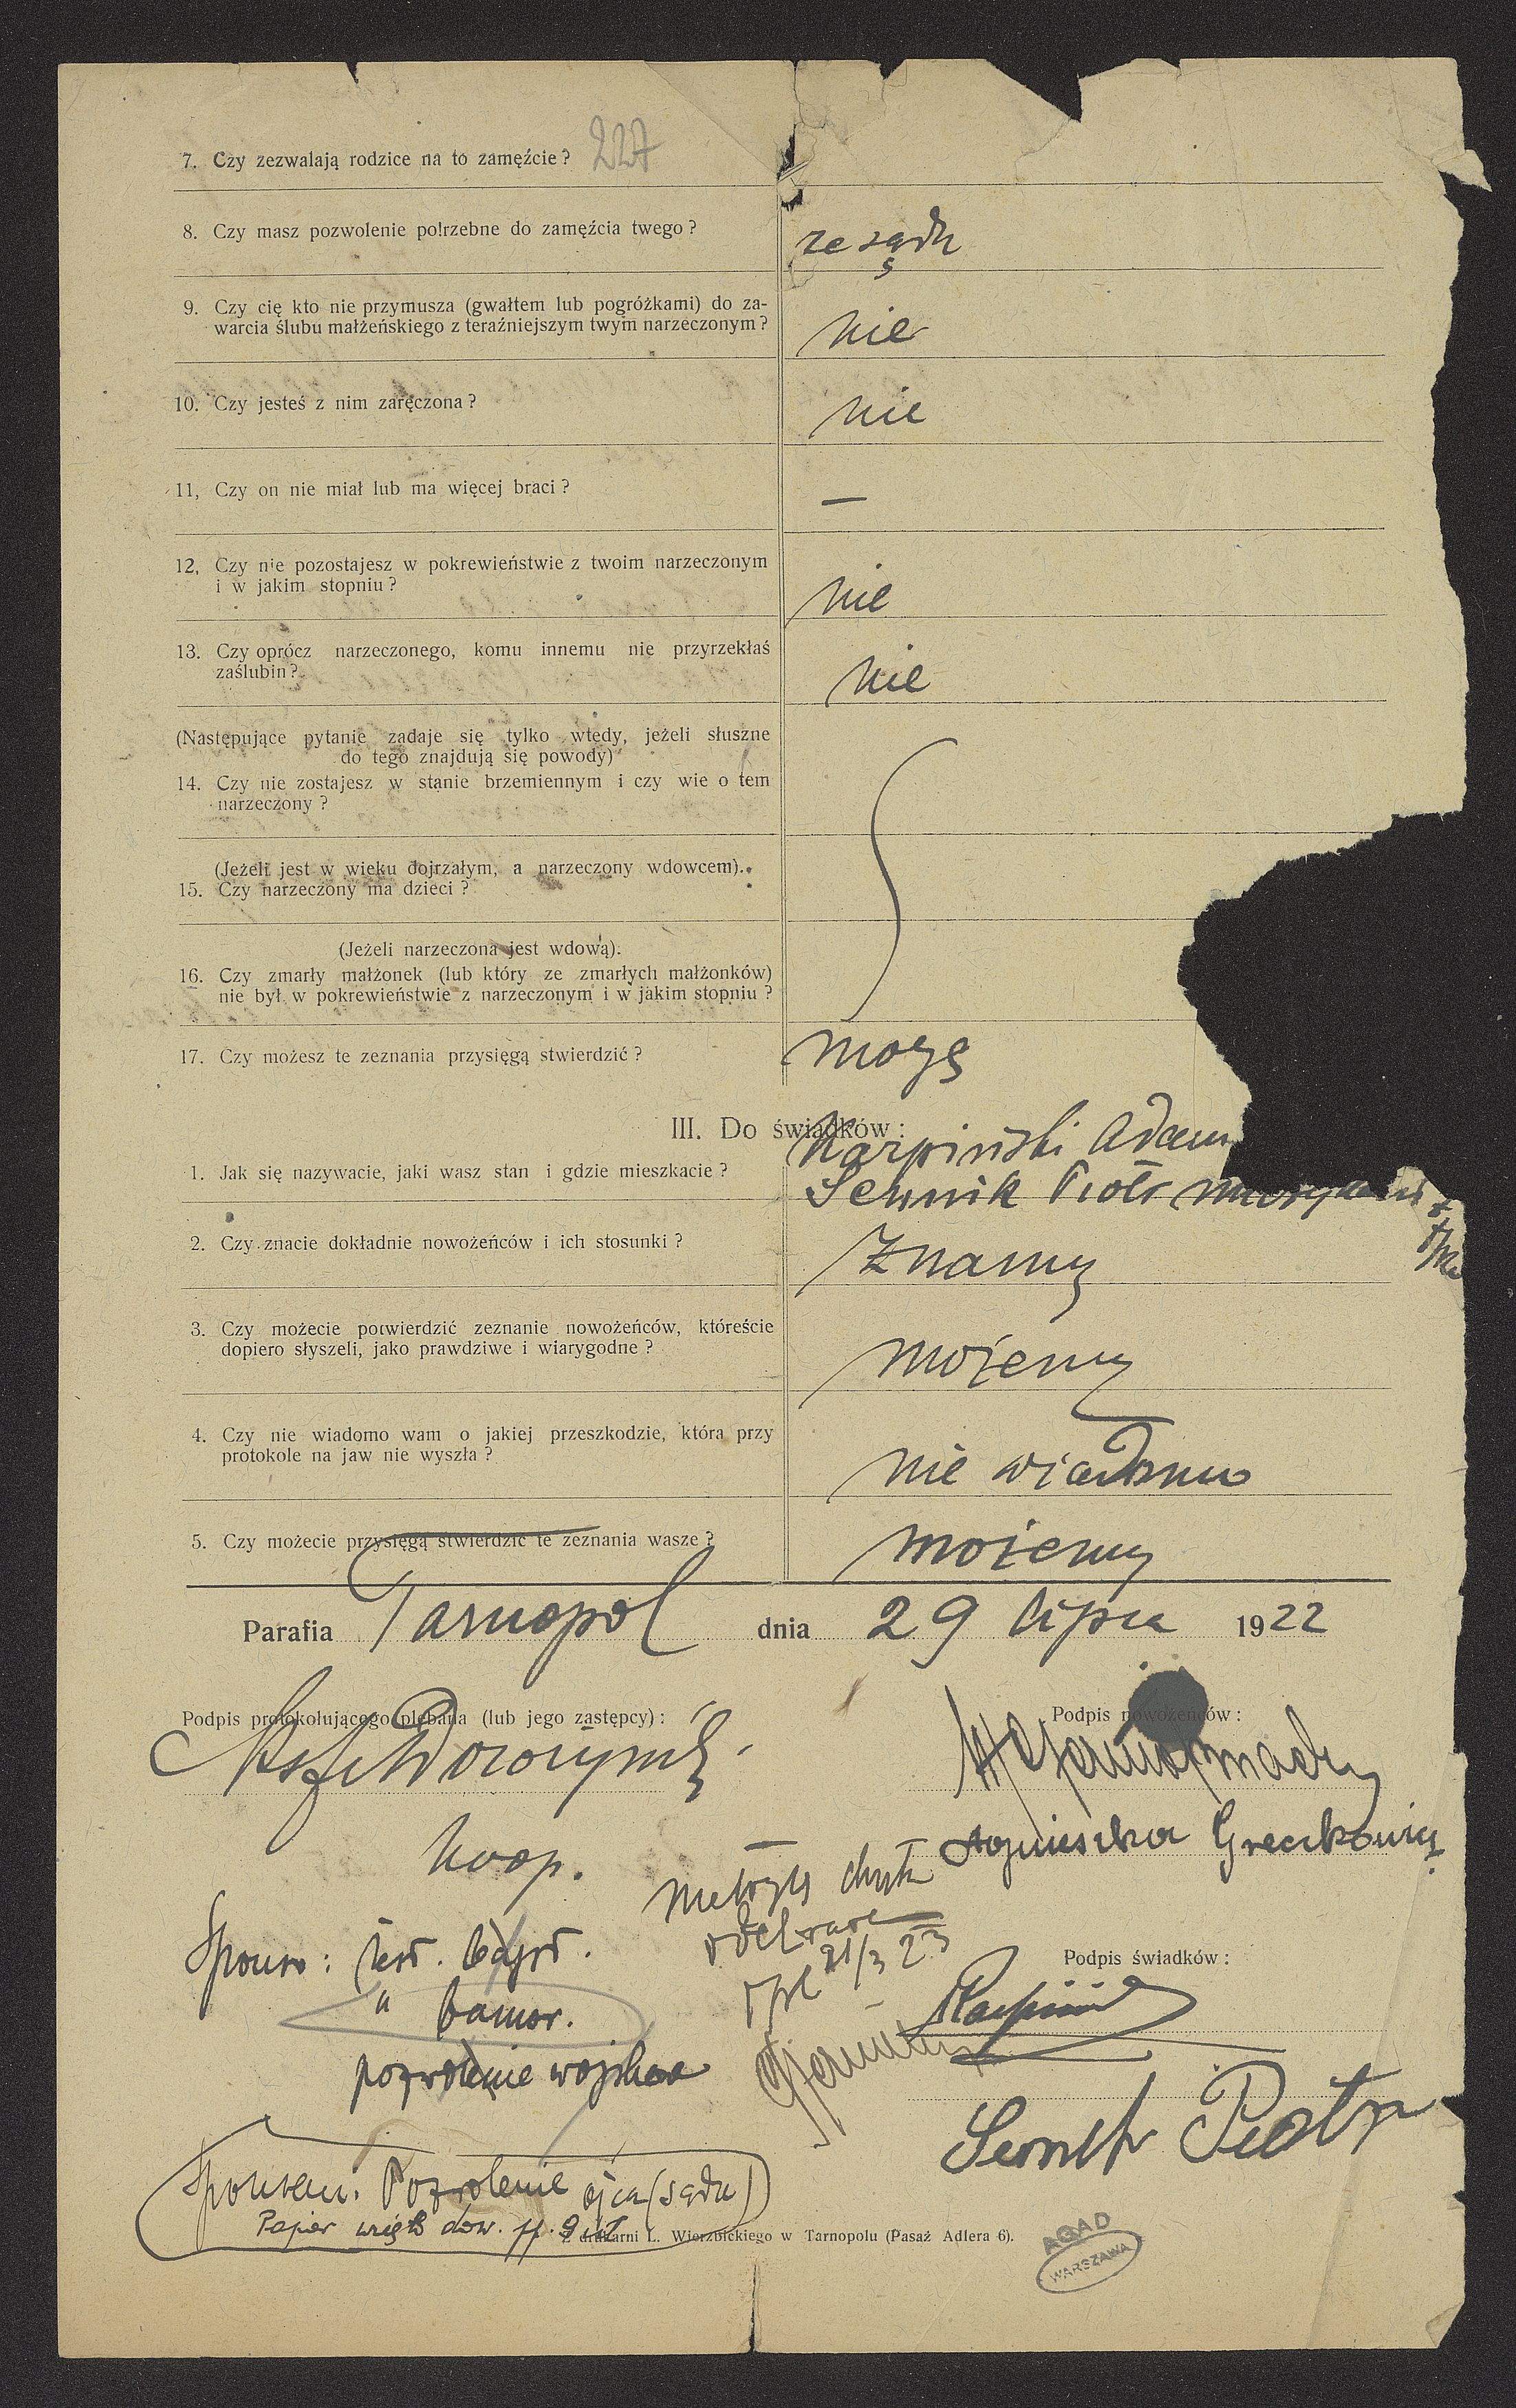 227
7. Czy zezwalają rodzice na to zamęźcie?
8. Czy masz pozwolenie potrzebne do zamęźcia twego?
ze sądu
9. Czy cię kto nie przymusza (gwałtem lub pogróżkami) do za-
warcia ślubu małżeńskiego z teraźniejszym twym narzeczonym?
nie
10. Czy jesteś z nim zaręczona?
nie
11, Czy on nie miał lub ma więcej braci?
—
12, Czy nie pozostajesz w pokrewieństwie z twoim narzeczonym
i w jakim stopniu?
nie
13. Czy oprócz narzeczonego, komu innemu nie przyrzekłaś
zaślubin?
nie
(Następujące pytanie zadaje się tylko wtedy, jeżeli słuszne
do tego znajdują się powody)
14. Czy nie zostajesz w stanie brzemiennym i czy wie o tem
narzeczony?
(Jeżeli jest w wieku dojrzałym, a narzeczony wdowcem).
15. Czy narzeczony ma dzieci?
(Jeżeli narzeczona jest wdową).
16. Czy zmarły małżonek (lub który ze zmarłych małżonków)
nie był w pokrewieństwie z narzeczonym i w jakim stopniu?
17. Czy możesz te zeznania przysięgą stwierdzić?
mogę
III. Do świadków:
Karpiński Adam
1. Jak się nazywacie, jaki wasz stan i gdzie mieszkacie?
Piotr
2. Czy znacie dokładnie nowożeńców i ich stosunki?
Znamy
3. Czy możecie potwierdzić zeznanie nowożeńców, któreście
dopiero słyszeli, jako prawdziwe i wiarygodne?
możemy
4. Czy nie wiadomo wam o jakiej przeszkodzie, która przy
protokole na jaw nie wyszła?
nie wiadomo
5. Czy możecie przysięgą stwierdzić te zeznania wasze?
możemy
Parafia Tarnopol dnia 29 lipca 1922
Podpis protokołującego plebana (lub jego zastępcy):
Podpis nowożeńców:
koop.
Agnieszka
Metryki
odebrane
21/3 23
Podpis świadków:
pozwolenie
Piotr
Pozwolenie ojca (sądu)
Papier
Z drukarni L. Wierzbickiego w Tarnopolu (Pasaż Adlera 6).
AGAD
WARSZAWA